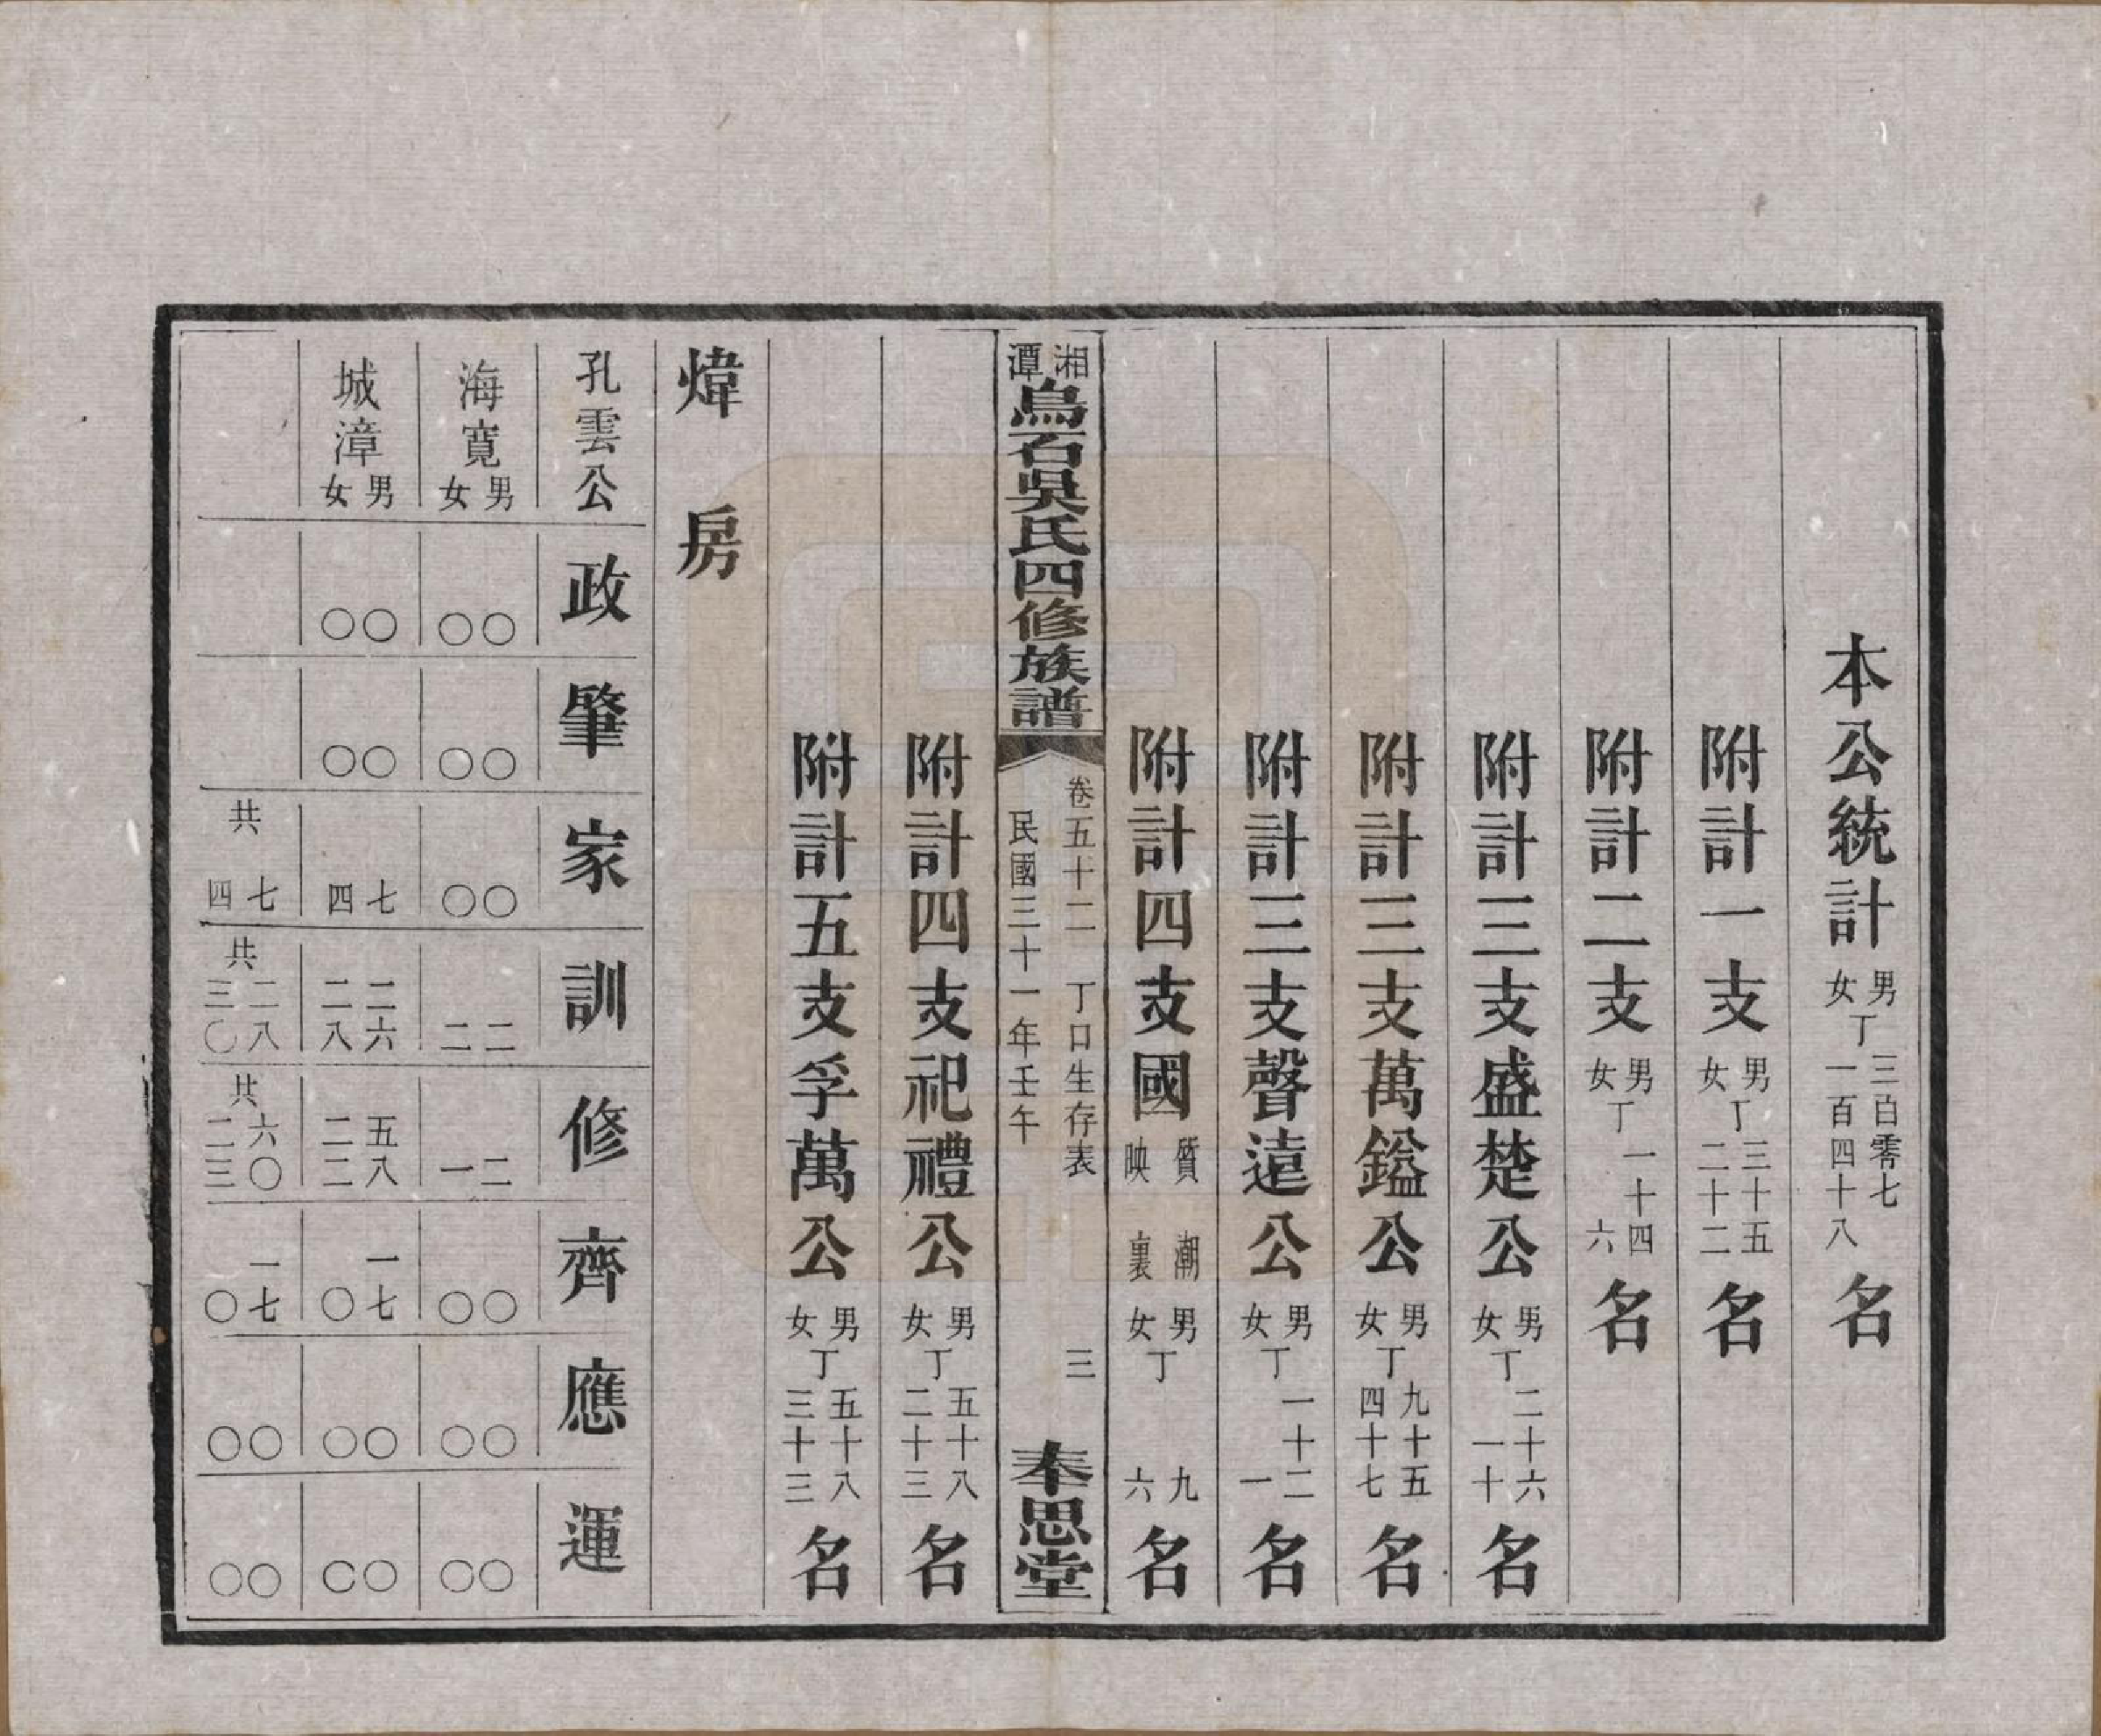 本公統計男女丁三百零七一百四十八名
附計一支男女丁三十五二十二名
附計二支男女丁一十四六名
附計三支盛楚公男女丁二十六一十名
附計三支萬鎰公男女丁九十五四十七名
附計三支聲遠公男女丁一十二一名
附計四支國質映潮裏男女丁九六名
湘潭烏石吳氏四修族譜
卷五十二 丁口生存表 三
民國三十一年壬午
奉思堂
附計四支祀禮公男女丁五十八二十三名
附計五支孚萬公男女丁五十八三十三名
煒房
孔雲公 政 肇 家 訓 修 齊 應 運
海寬男女 〇〇 〇〇 〇〇 二二 二一 〇〇 〇〇 〇〇
城漳男女 〇〇 〇〇 七四 二六二八 五八二二 一七〇 〇〇 〇〇
共七四 共二八三〇 共六〇二三 一七〇 〇〇 〇〇